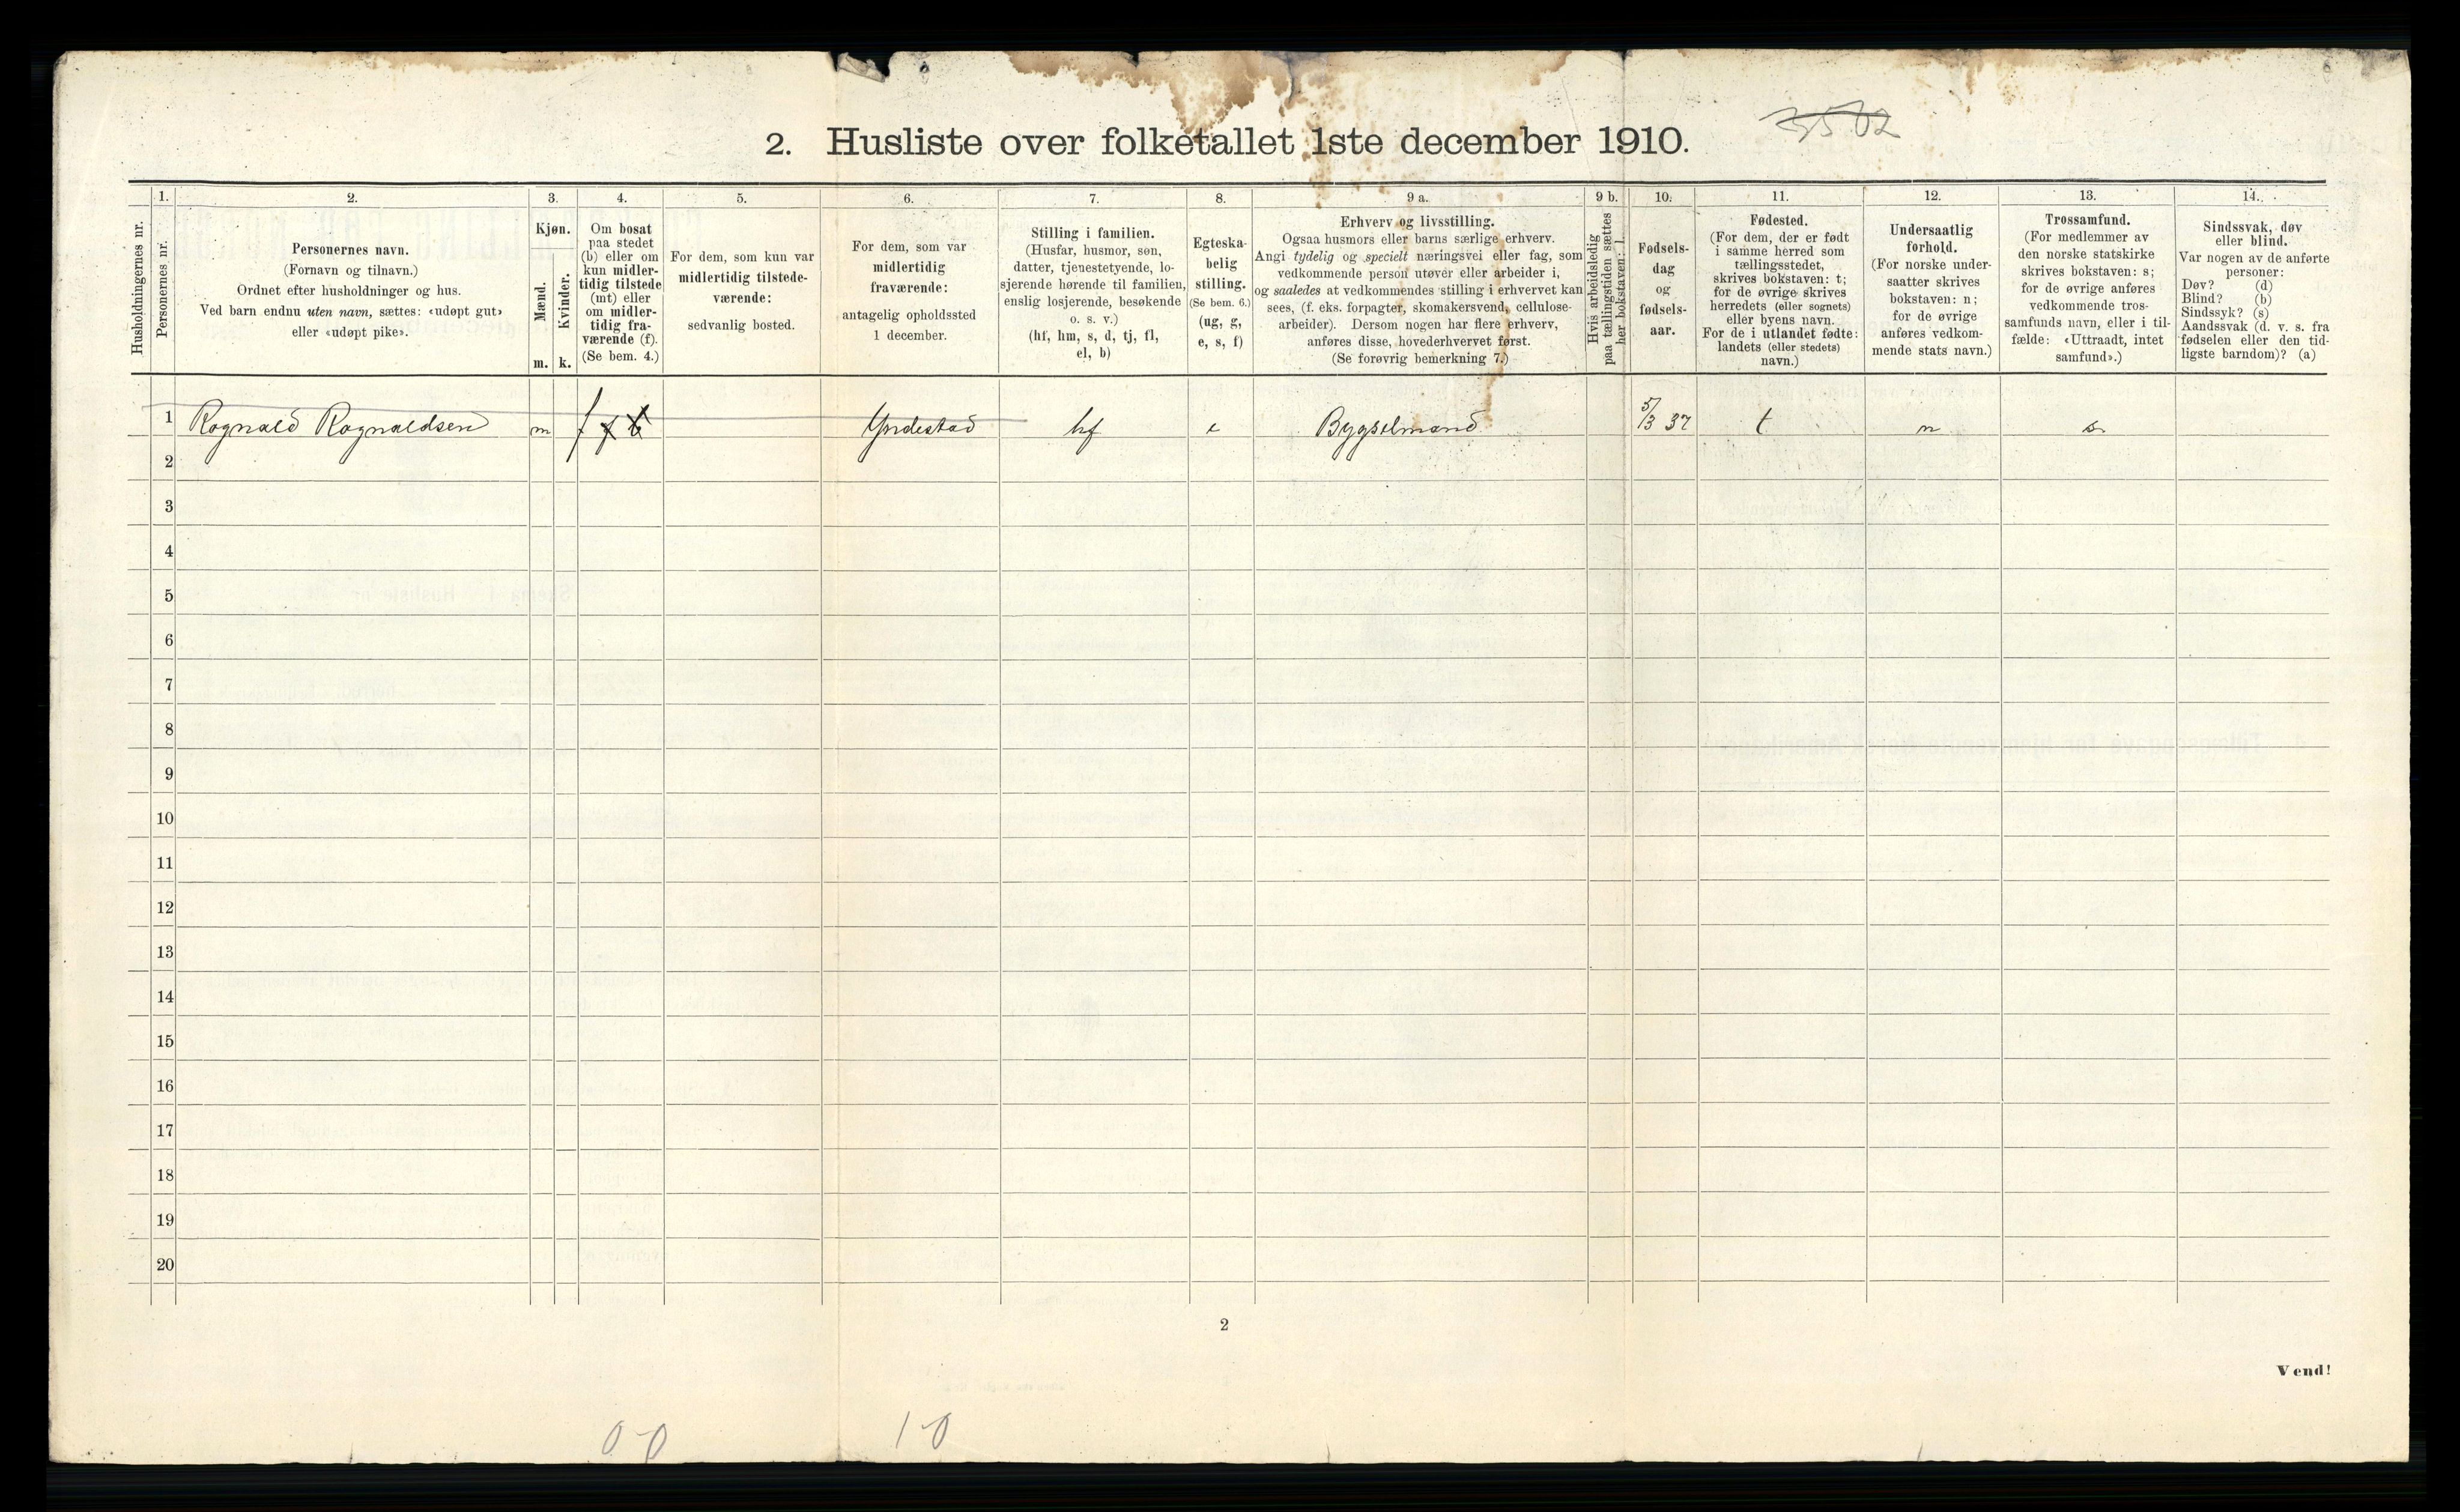 3502
2. Husliste over folketallet 1ste december 1910.
Husholdningernes nr.
1.
Personernes nr.
2.
Personernes navn.
(Fornavn og tilnavn.)
Ordnet efter husholdninger og hus.
Ved barn endnu uten navn, sættes: «udøpt gut»
eller «udøpt pike».
3.
Kjøn.
Mænd.
Kvinder.
m. k.
4.
Om bosat
paa stedet
(b) eller om
kun midler-
tidig tilstede
(mt) eller
om midler-
tidig fra-
værende (f).
(Se bem. 4.)
5.
For dem, som kun var
midlertidig tilstede-
værende:
sedvanlig bosted.
6.
For dem, som var
midlertidig
fraværende:
antagelig opholdssted
1 december.
7.
Stilling i familien.
(Husfar, husmor, søn,
datter, tjenestetyende, lo-
sjerende hørende til familien,
enslig losjerende, besøkende
o. s. v.)
(hf, hm, s, d, tj, fl,
el, b)
8.
Egteska-
belig
stilling.
(Se bem. 6.)
(ug, g,
e, s, f)
9 a.
Erhverv og livsstilling.
Ogsaa husmors eller barns særlige erhverv.
Angi tydelig og specielt næringsvei eller fag, som
vedkommende person utøver eller arbeider i,
og saaledes at vedkommendes stilling i erhvervet kan
sees, (f. eks. forpagter, skomakersvend, cellulose-
arbeider). Dersom nogen har flere erhverv,
anføres disse, hovederhvervet først.
(Se forøvrig bemerkning 7.)
9 b.
Hvis arbeidsledig
paa tællingstiden sættes
her bokstaven: l.
10.
Fødsels-
dag
og
fødsels-
aar.
11.
Fødested.
(For dem, der er født
i samme herred som
tællingsstedet,
skrives bokstaven: t;
for de øvrige skrives
herredets (eller sognets)
eller byens navn.
For de i utlandet fødte:
landets (eller stedets)
navn.)
12.
Undersaatlig
forhold.
(For norske under-
saatter skrives
bokstaven: n;
for de øvrige
anføres vedkom-
mende stats navn.)
13.
Trossamfund.
(For medlemmer av
den norske statskirke
skrives bokstaven: s;
for de øvrige anføres
vedkommende tros-
samfunds navn, eller i til-
fælde: «Uttraadt, intet
samfund».)
14.
Sindssvak, døv
eller blind.
Var nogen av de anførte
personer:
Døv? (d)
Blind? (b)
Sindssyk? (s)
Aandssvak (d. v. s. fra
fødselen eller den tid-
ligste barndom)? (a)
1 Rognald Rognaldsen m f f b Yndestad hf e Bygselmand 5/3 37 t n s
2
3
4
5
6
7
8
9
10
11
12
13
14
15
16
17
18
19
20
2
Vend!
0-0 1-0